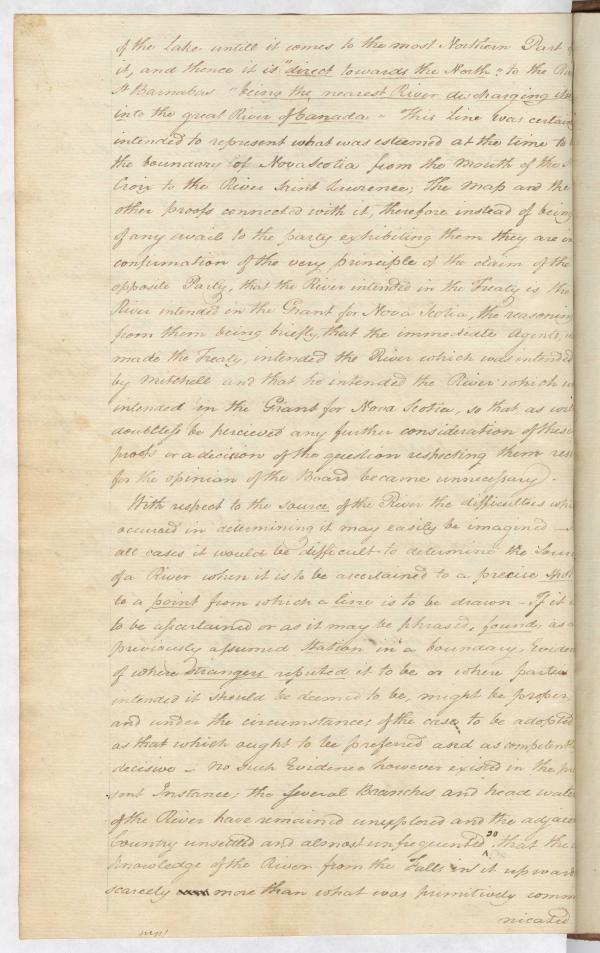 of the Lake untill it comes to the most Northern Part
it, and thence it is "direct towards the North" to the
St Barnabas "being the nearest River discharging
into the great River of Canada" This Line was certain
intended to represent what was esteemed at the time to
the boundary of Nova Scotia from the Mouth of the
Croix to the River Saint Lawrence; The Map and the
other proofs connected with it, therefore instead of being
of any avail to the party exhibiting them they are in
confirmation of the very principle of the claim of the
opposite Party, that the River intended in the Treaty is the
River intended in the Grant for Nova Scotia, the reasoning
from them being briefly, that the immediate Agents,
made the Treaty, intended the River which was intended
by Mitchell and that he intended the River which
intended in the Grant for Nova Scotia, so that as will
doubtless be percieved any further consideration of these
proofs or a decision of the question respecting them
for the opinion of the Board became unnecessary.
With respect to the source of the River the difficulties
occured in determining it may easily be imagined —
all cases it would be difficult to determine the
of a River when it is to be ascertained to a precise spot
to a point from which a line is to be drawn - If it
to be ascertained or as it may be phrased, found, as a
previously assumed Station in a boundary,
of where strangers reputed it to be or where parties
intended it should be deemed to be, might be proper
and under the circumstances of the case, to be adopted
as that which ought to be preferred and as competent
decisive - no such Evidence however existed in the
sent Instance; the several Branches and head
of the River have remained unexplored and the
Country unsettled and almost unfrequented so that the
knowledge of the River from the Falls in it upward
scarcely more than what was primitively comm
nicated